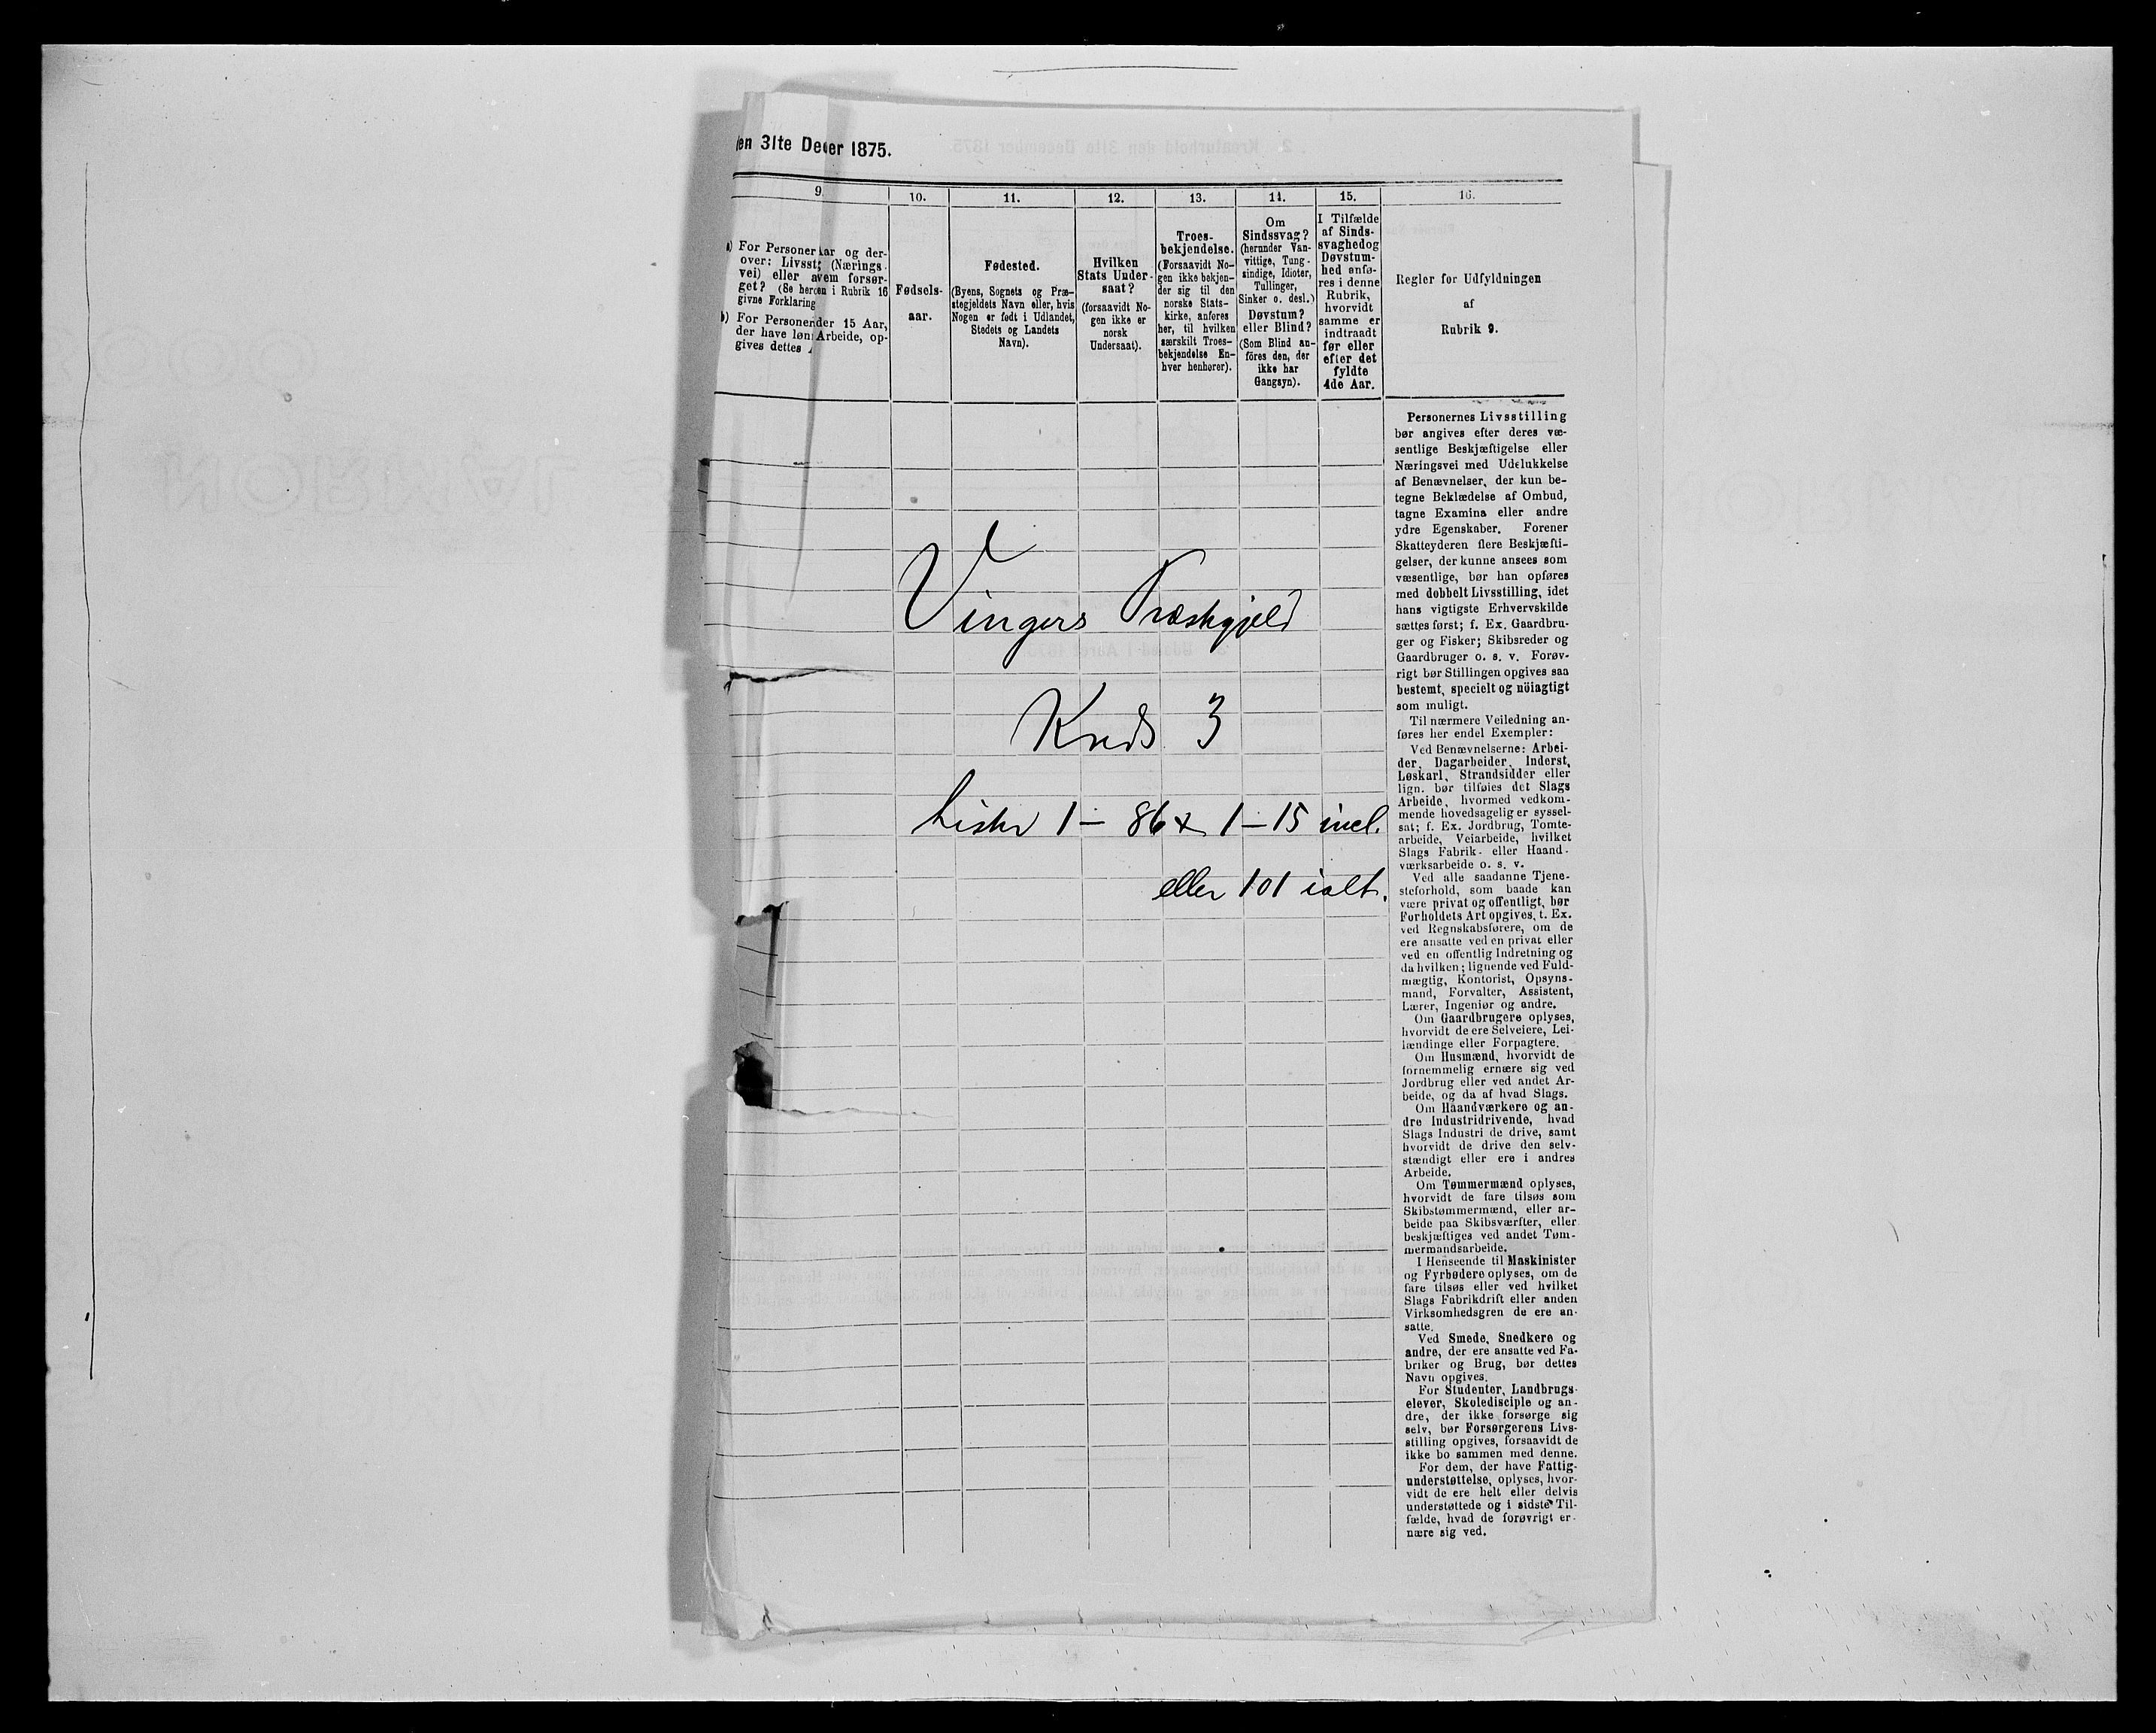 den 31te Deer 1875.
9.
a) For Personer ar og der-
over: Livsst (Nærings-
vei) eller a vem forsør-
get? (Se her en i Rubrik 16
givne Forklaring
b) For Personer der 15 Aar,
der have løn Arbeide, op-
gives dettes
10.
Fødsels-
aar.
11.
Fødested.
(Byens, Sognets og Præ-
stegjeldets Navn eller, hvis
Nogen er født i Udlandet,
Stedets og Landets
Navn).
12.
Hvilken
Stats Under-
saat?
(forsaavidt No-
gen ikke er
norsk
Undersaat).
13.
Troes-
bekjendelse.
(Forsaavidt No-
gen ikke bekjen-
der sig til den
norske Stats-
kirke, anføres
her, til hvilken
særskilt Troes-
bekjendelse En-
hver henhører).
14.
Om
Sindssvag?
(herunder Van-
vittige, Tung-
sindige, Idioter,
Tullinger,
Sinker o. desl.)
Døvstum?
eller Blind?
(Som Blind an-
føres den, der
ikke har
Gangsyn).
15.
I Tilfælde
af Sinds-
svaghed og
Døvstum-
hed anfø-
res i denne
Rubrik,
hvorvidt
samme er
indtraadt
før eller
efter det
fyldte
4de Aar.
16.
Regler for Udfyldningen
af
Rubrik 9.
Personernes Livsstilling
bør angives efter deres væ-
sentlige Beskjæftigelse eller
Næringsvei med Udelukkelse
af Benævnelser, der kun be-
tegne Beklædelse af Ombud,
tagne Examina eller andre
ydre Egenskaber. Forener
Skatteyderen flere Beskjæfti-
gelser, der kunne ansees som
væsentlige, bør han opføres
med dobbelt Livsstilling, idet
hans vigtigste Erhvervskilde
sættes først; f. Ex. Gaardbru-
ger og Fisker; Skibsreder og
Gaardbruger o. s. v. Forøv-
rigt bør Stillingen opgives saa
bestemt, specielt og nöiagtigt
som muligt.
Til nærmere Veiledning an-
føres her endel Exempler:
Ved Benævnelserne: Arbei-
der, Dagarbeider, Inderst,
Løskarl, Strandsidder eller
lign. bør tilføies det Slags
Arbeide, hvormed vedkom-
mende hovedsagelig er syssel-
sat; f. Ex. Jordbrug, Tomte-
arbeide, Veiarbeide, hvilket
Slags Fabrik- eller Haand-
værksarbeide o. s. v.
Ved alle saadanne Tjene-
steforhold, som baade kan
være privat og offentligt, bør
Forholdets Art opgives, t. Ex.
ved Regnskabsførere, om de
ere ansatte ved en privat eller
ved en offentlig Indretning og
da hvilken; lignende ved Fuld-
mægtig, Kontorist, Opsyns-
mand, Forvalter, Assistent,
Lærer, Ingeniør og andre.
Om Gaardbrugere oplyses,
hvorvidt de ere Selveiere, Lei-
lændinge eller Forpagtere.
Om Husmænd, hvorvidt de
fornemmelig ernære sig ved
Jordbrug eller ved andet Ar-
beide, og da af hvad Slags.
Om Haandværkere og an-
dre Industridrivende, hvad
Slags Industri de drive, samt
hvorvidt de drive den selv-
stændigt eller ere i andres
Arbeide.
Om Tømmermænd oplyses,
hvorvidt de fare tilsøs som
Skibstømmermænd, eller ar-
beide paa Skibsværfter, eller
beskjæftiges ved andet Tøm-
mermandsarbeide.
I Henseende til Maskinister
og Fyrbødere oplyses, om de
fare tilsøs eller ved hvilket
Slags Fabrikdrift eller anden
Virksomhedsgren de ere an-
satte.
Ved Smede, Snedkere og
andre, der ere ansatte ved Fa-
briker og Brug, bør dettes
Navn opgives.
For Studenter, Landbrugs-
elever, Skoledisciple og an-
dre, der ikke forsørge sig
selv, bør Forsørgerens Livs-
stilling opgives, forsaavidt de
ikke bo sammen med denne.
For dem, der have Fattig-
understøttelse, oplyses, hvor-
vidt de ere helt eller delvis
understøttede og i sidste Til-
fælde, hvad de forøvrigt er-
nære sig ved.
Vingers Præstegjeld
Kreds 3
Lister 1 – 86 & 1 – 15 incl.
eller 101 ialt.